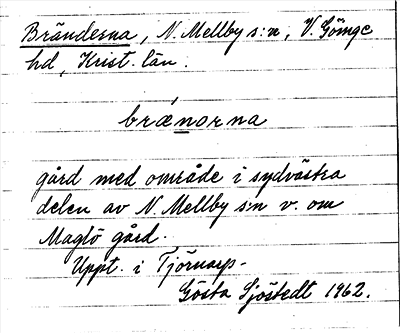 Bränderna, N. Mellby s:n, V. Göinge
hd, Krist. län.
brænorna
gård med område i sydvästra
delen av N. Mellby s:n v. om
Maglö gård.
Uppt. i Tjörnarp.
Gösta Sjöstedt 1962.